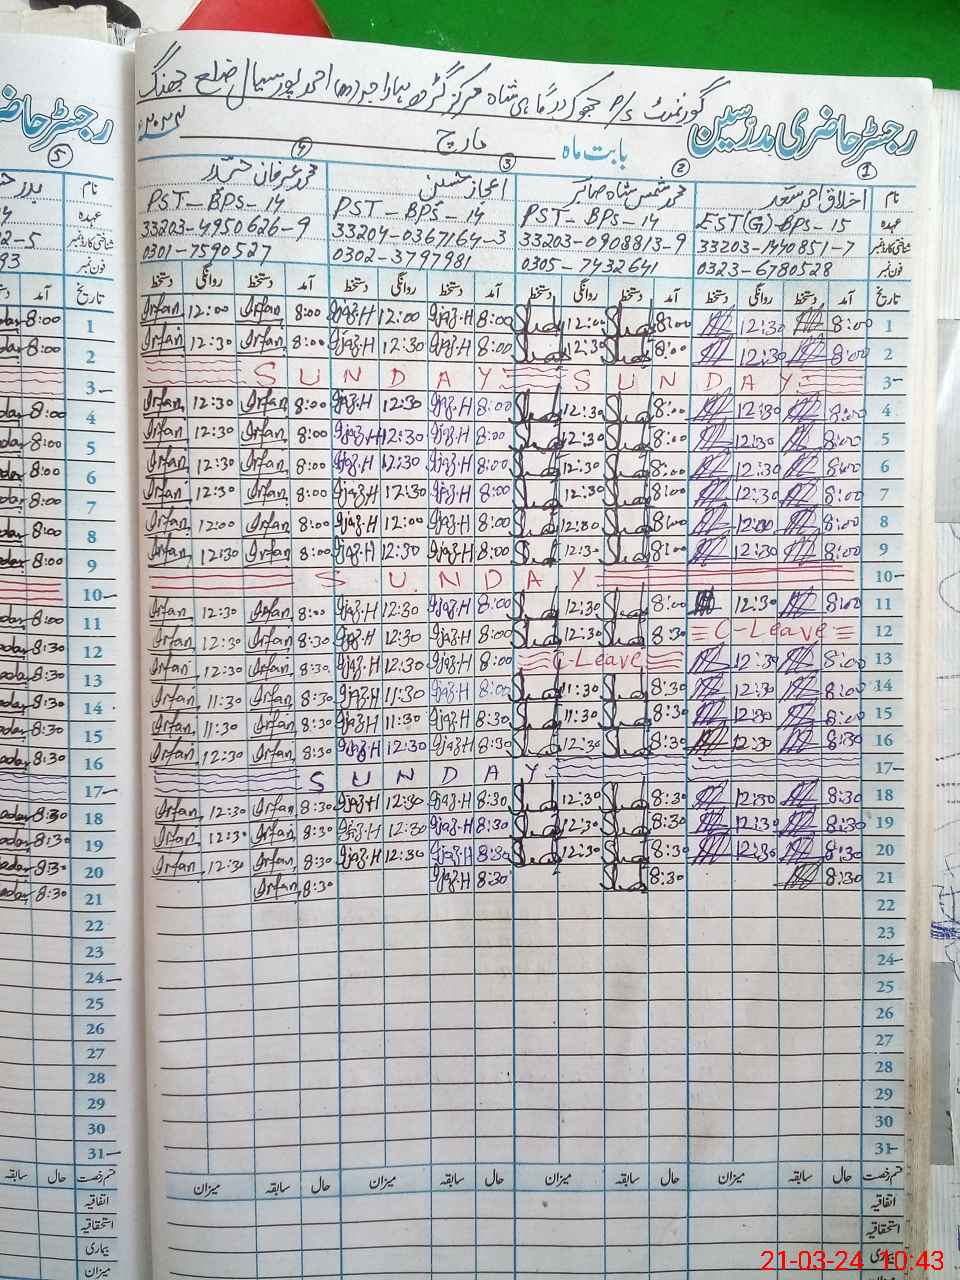 گورنمنٹ P/S جھوک درگاہی شاہ مرکز گڑھ مہاراجہ (m) احمد پور سیال ضلع جھنگ
رجسٹر حاضری مدرسین
بابت ماہ مارچ ۲۰۲۴
① ② ③ ④ ⑤
نام اخلاق احمد سعد محمد شمس شاہ صابر اعجاز حسین محمد عرفان حیدر
عہدہ EST(G)-BPS-15 PST-BPS-14 PST-BPS-14 PST-BPS-14
شناختی کارڈ نمبر 33203-1440851-7 33203-0908813-9 33204-0367164-3 33203-4950626-9
فون نمبر 0323-6780528 0305-7432641 0302-3797981 0301-7590527
تاریخ آمد دستخط روانگی دستخط آمد دستخط روانگی دستخط آمد دستخط روانگی دستخط آمد دستخط روانگی دستخط
1 8:00 12:30 8:00 12:00 8:00 Ijaz.H 12:00 Ijaz.H 8:00 Irfan 12:00 Irfan
2 8:00 12:30 8:00 12:30 8:00 Ijaz.H 12:30 Ijaz.H 8:00 Irfan 12:30 Irfan
3 SUNDAY SUNDAY
4 8:00 12:30 8:00 12:30 8:00 Ijaz.H 12:30 Ijaz.H 8:00 Irfan 12:30 Irfan
5 8:00 12:30 8:00 12:30 8:00 Ijaz.H 12:30 Ijaz.H 8:00 Irfan 12:30 Irfan
6 8:00 12:30 8:00 12:30 8:00 Ijaz.H 12:30 Ijaz.H 8:00 Irfan 12:30 Irfan
7 8:00 12:30 8:00 12:30 8:00 Ijaz.H 12:30 Ijaz.H 8:00 Irfan 12:30 Irfan
8 8:00 12:00 8:00 12:00 8:00 Ijaz.H 12:00 Ijaz.H 8:00 Irfan 12:00 Irfan
9 8:00 12:30 8:00 12:30 8:00 Ijaz.H 12:30 Ijaz.H 8:00 Irfan 12:30 Irfan
10 SUNDAY
11 8:00 12:30 8:00 12:30 8:00 Ijaz.H 12:30 Ijaz.H 8:00 Irfan 12:30 Irfan
12 C-Leave 8:30 12:30 8:00 Ijaz.H 12:30 Ijaz.H 8:30 Irfan 12:30 Irfan
13 8:00 12:30 C-Leave 8:00 Ijaz.H 12:30 Ijaz.H 8:30 Irfan 12:30 Irfan
14 8:00 12:30 8:30 11:30 8:00 Ijaz.H 11:30 Ijaz.H 8:30 Irfan 11:30 Irfan
15 8:00 12:30 8:30 11:30 8:30 Ijaz.H 11:30 Ijaz.H 8:30 Irfan 11:30 Irfan
16 8:30 12:30 8:30 12:30 8:30 Ijaz.H 12:30 Ijaz.H 8:30 Irfan 12:30 Irfan
17 SUNDAY
18 8:30 12:30 8:30 12:30 8:30 Ijaz.H 12:30 Ijaz.H 8:30 Irfan 12:30 Irfan
19 8:30 12:30 8:30 12:30 8:30 Ijaz.H 12:30 Ijaz.H 8:30 Irfan 12:30 Irfan
20 8:30 12:30 8:30 12:30 8:30 Ijaz.H 12:30 Ijaz.H 8:30 Irfan 12:30 Irfan
21 8:30 8:30 8:30 Ijaz.H 8:30 Irfan
22
23
24
25
26
27
28
29
30
31
قسم رخصت حال سابقہ میزان حال سابقہ میزان حال سابقہ میزان حال سابقہ میزان
اتفاقیہ
استحقاقیہ
بیماری
نام
تاریخ
1 8:00
2 8:00
3
4 8:00
5 8:00
6 8:00
7 8:00
8 8:00
9 8:00
10
11 8:00
12 8:30
13 8:30
14 8:30
15 8:30
16 8:30
17
18 8:30
19 8:30
20 8:30
21 8:30
22
23
24
25
26
27
28
29
30
31
قسم رخصت حال سابقہ
اتفاقیہ
استحقاقیہ
بیماری
میزان
21-03-24 10:43